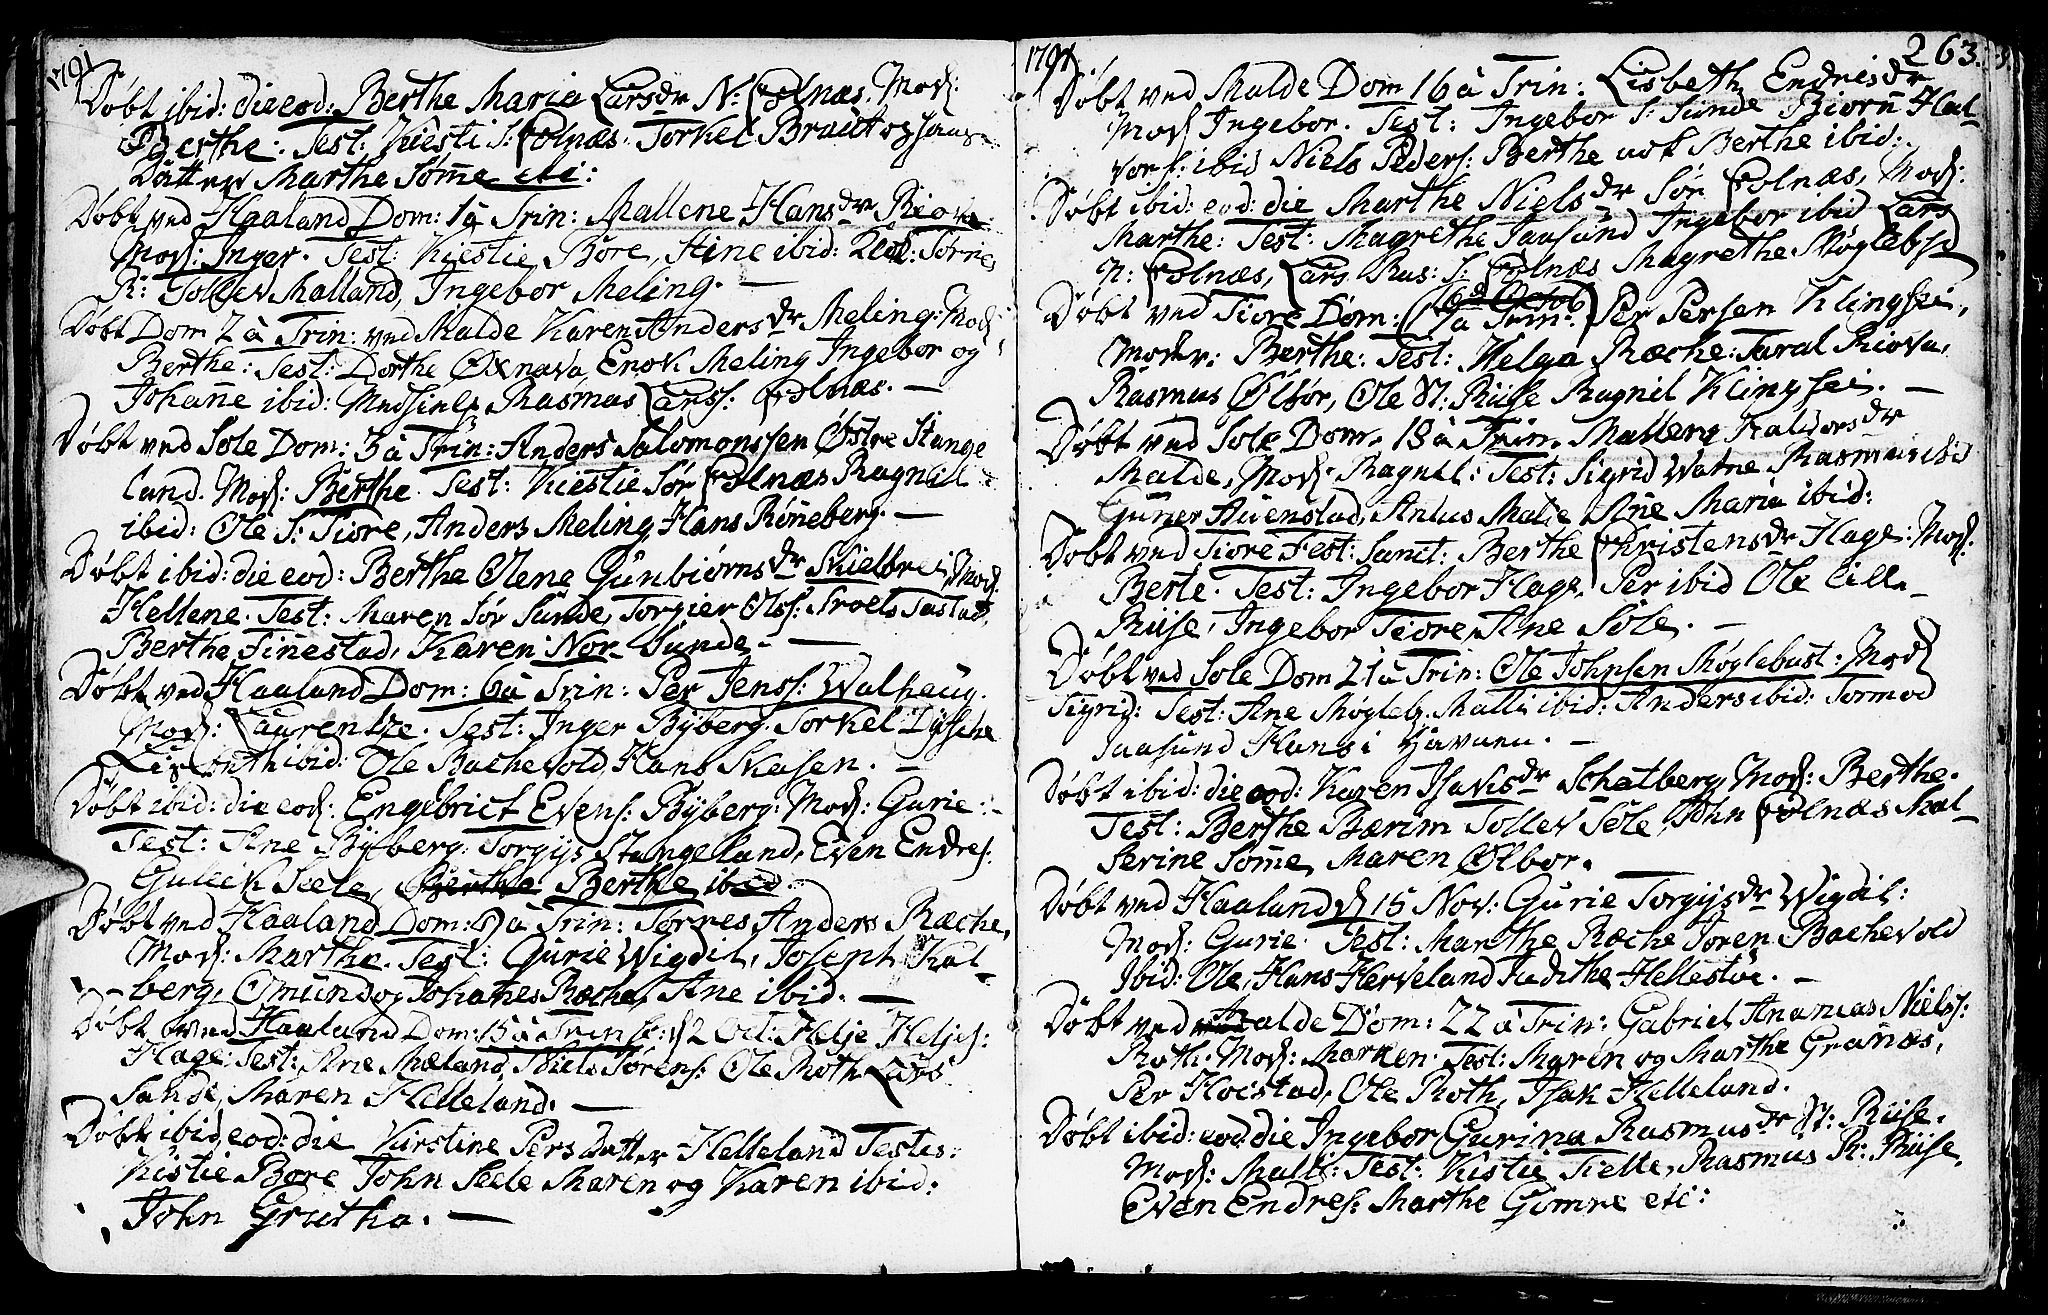 1791
Døbt ibid: die eod: Berthe Maria Larsdr N: Folnæs. Mod:
Berthe: Test: Kiesti S: Folnæs. Torkel Braut og hans
Datter Marthe Sømme etc:
Døbt ved Haaland Dom: 1 à Trin: Mallene Hansdr Riova
Mod: Inger. Test: Kiestie Bore, Stine ibid:
R: Tollev Malland, Ingebor Meling. —
Døbt Dom 2 à Trin: ved Malde Karen Andersdr Meling: Mod:
Berthe: Test: Dorthe Øxnava Enok Meling Ingebor og
Johanne ibid: Rasmus Larss: Folnæs. —
Døbt ved Sole Dom: 3 à Trin: Anders Salomonssen Østre Stange
land. Mod: Berthe. Test: Kiestie Sør Folnæs Ragnill
ibid: Ole S: Tiore, Anders Meling, Hans Rønneberg. —
Døbt ibid: die eod: Berthe Olene Gunbiørnsdr Skielbrei, Mod:
Hellene. Test: Maren Sør Sunde, Torgier Olss: Troels Tastad,
Berthe Finnestad, Karen Nor Sunde. —
Døbt ved Haaland Dom: 6 à Trin: Per Jenss: Walheug.
Mod: Laurentze. Test: Inger Byberg. Torkel Dysche
Lisbeth ibid: Ole Bachevold, Hans Skasen. —
Døbt ibid: die eod: Engebrict Evens: Byberg: Mod: Gurie: —
Test: Ane Byberg: Torgijs Stangeland, Even Endres:
Gulleik Seele, Berthe Berthe ibid
Døbt ved Haaland Dom: 9 à Trin: Tørres Anders Ræche,
Mod: Marthe. Test: Gurie Wigdil, Joseph Kal-
berg, Omund og Johannes Ræche, Ane ibid. —
Døbt ved Haaland Dom: 15 à Trin d: 2 Oct: Helje Heljes:
Hage: Test: Ane Mæland, Niels Sørens: Ole Roth Lars
Sande, Maren Helleland. —
Døbt ibid, eod: die Kirstine Pers Datter Helleland Testes:
Kistie Bore John Seele Maren og Karen ibid:
John Grutha. —
1791 263.
Døbt ved Malde Dom 16 à Trin: Lisbeth Endresdr
Mod Ingebor. Test: Ingebor S: Sunde Biørn Hal-
vors: ibid Niels Peders: Berthe udt Berthe ibid:
Døbt ibid: eod: die Marthe Nielsdr Sør Folnæs, Mod:
Marthe: Test: Magrethe Jaasund Ingebor ibid Lars
N: Folnæs, Lars Rus: S: Folnæs Magrethe Møglebst
Døbt ved Tiore Dom: (17 à Trin:) Per Persen Klingsei,
Moder: Berthe: Test: Helga Ræche: Taral Riova,
Rasmus Ølbør, Ole St: Riise Ragnil Klingsei. —
Døbt ved Sole Dom. 18 à Trin. Malleng Halvorsdr
Malde, Mod. Ragnil: Test: Sigrid Watne Rasmus ibid
Guner Auenstad, Antus Malie Ane Maria ibid:
Døbt ved Tiore Fest: Sanct: Berthe Christensdr Hage: Mod:
Berte. Test: Ingebor Hage, Per ibid Ole lille
Riise, Ingebor Tiore, Ane Sole. —
Døbt ved Sole Dom 21 à Trin: Ole Johnsen Møglebust: Mod
Sigrid: Test: Ane Mogleb. Malli ibid: Anders ibid: Tormod
Jaasund Hans i Havnen. —
Døbt ibid: die eod: Karen Isakisdr Schatberg Mod: Berthe.
Test: Berthe Bærim Tollev Sole, John Folnæs Mal-
Serine Sømme, Maren Ølbor.
Døbt ved Haaland d 15 Nov: Gurie Torgijsdr Wigdil:
Mod: Gurie. Test: Marthe Ræche Joren Bachevold
Ibid: Ole, Hans Herveland Judithe Hellestøe. —
Døbt ved Malde Dom: 22 à Trin: Gabriel Ananias Nielss:
Roth. Mod: Marken. Test: Maren og Marthe Granæs,
Per Hoistad, Ole Roth, Isak Helleland.
Døbt ibid: eod: die Ingebor Gurina Rasmusdr St: Riise.
Mod: Malli: Test: Kistie Tielte, Rasmus R: Riise,
Even Endres: Marthe Gimre etc: